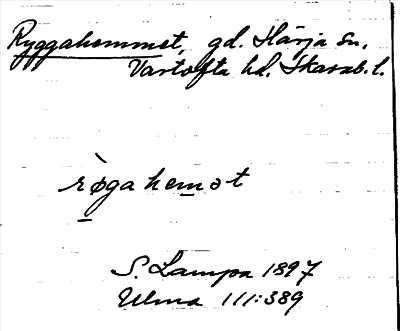 Ryggahemmet, gd. Härja sn,
Vartofta hd. Skarab. l.
rø̀gahemət
S. Lampa 1897
Ulma 111:389